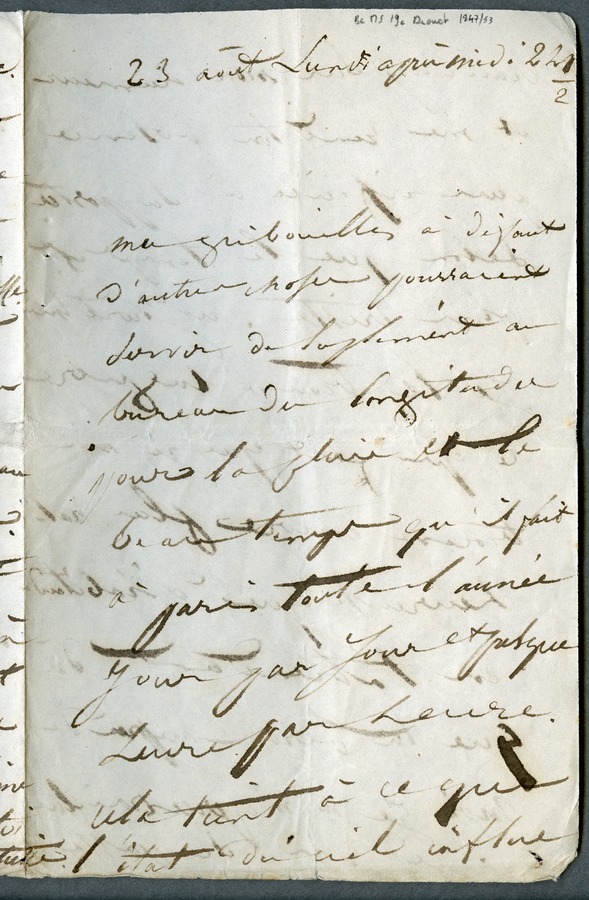 Bc MS 19c Drouet 1847/53
23 août Lundi après midi 2h 1/2
mes gribouillis à défaut
d'autres choses pourraient
servir de suplément au
bureau des longitudes
pour la pluie et le
beau temps qu'il fait
à paris toute l'année
jour par jour et presque
heure par heure.
cela tient à ce que
l'état du ciel influe